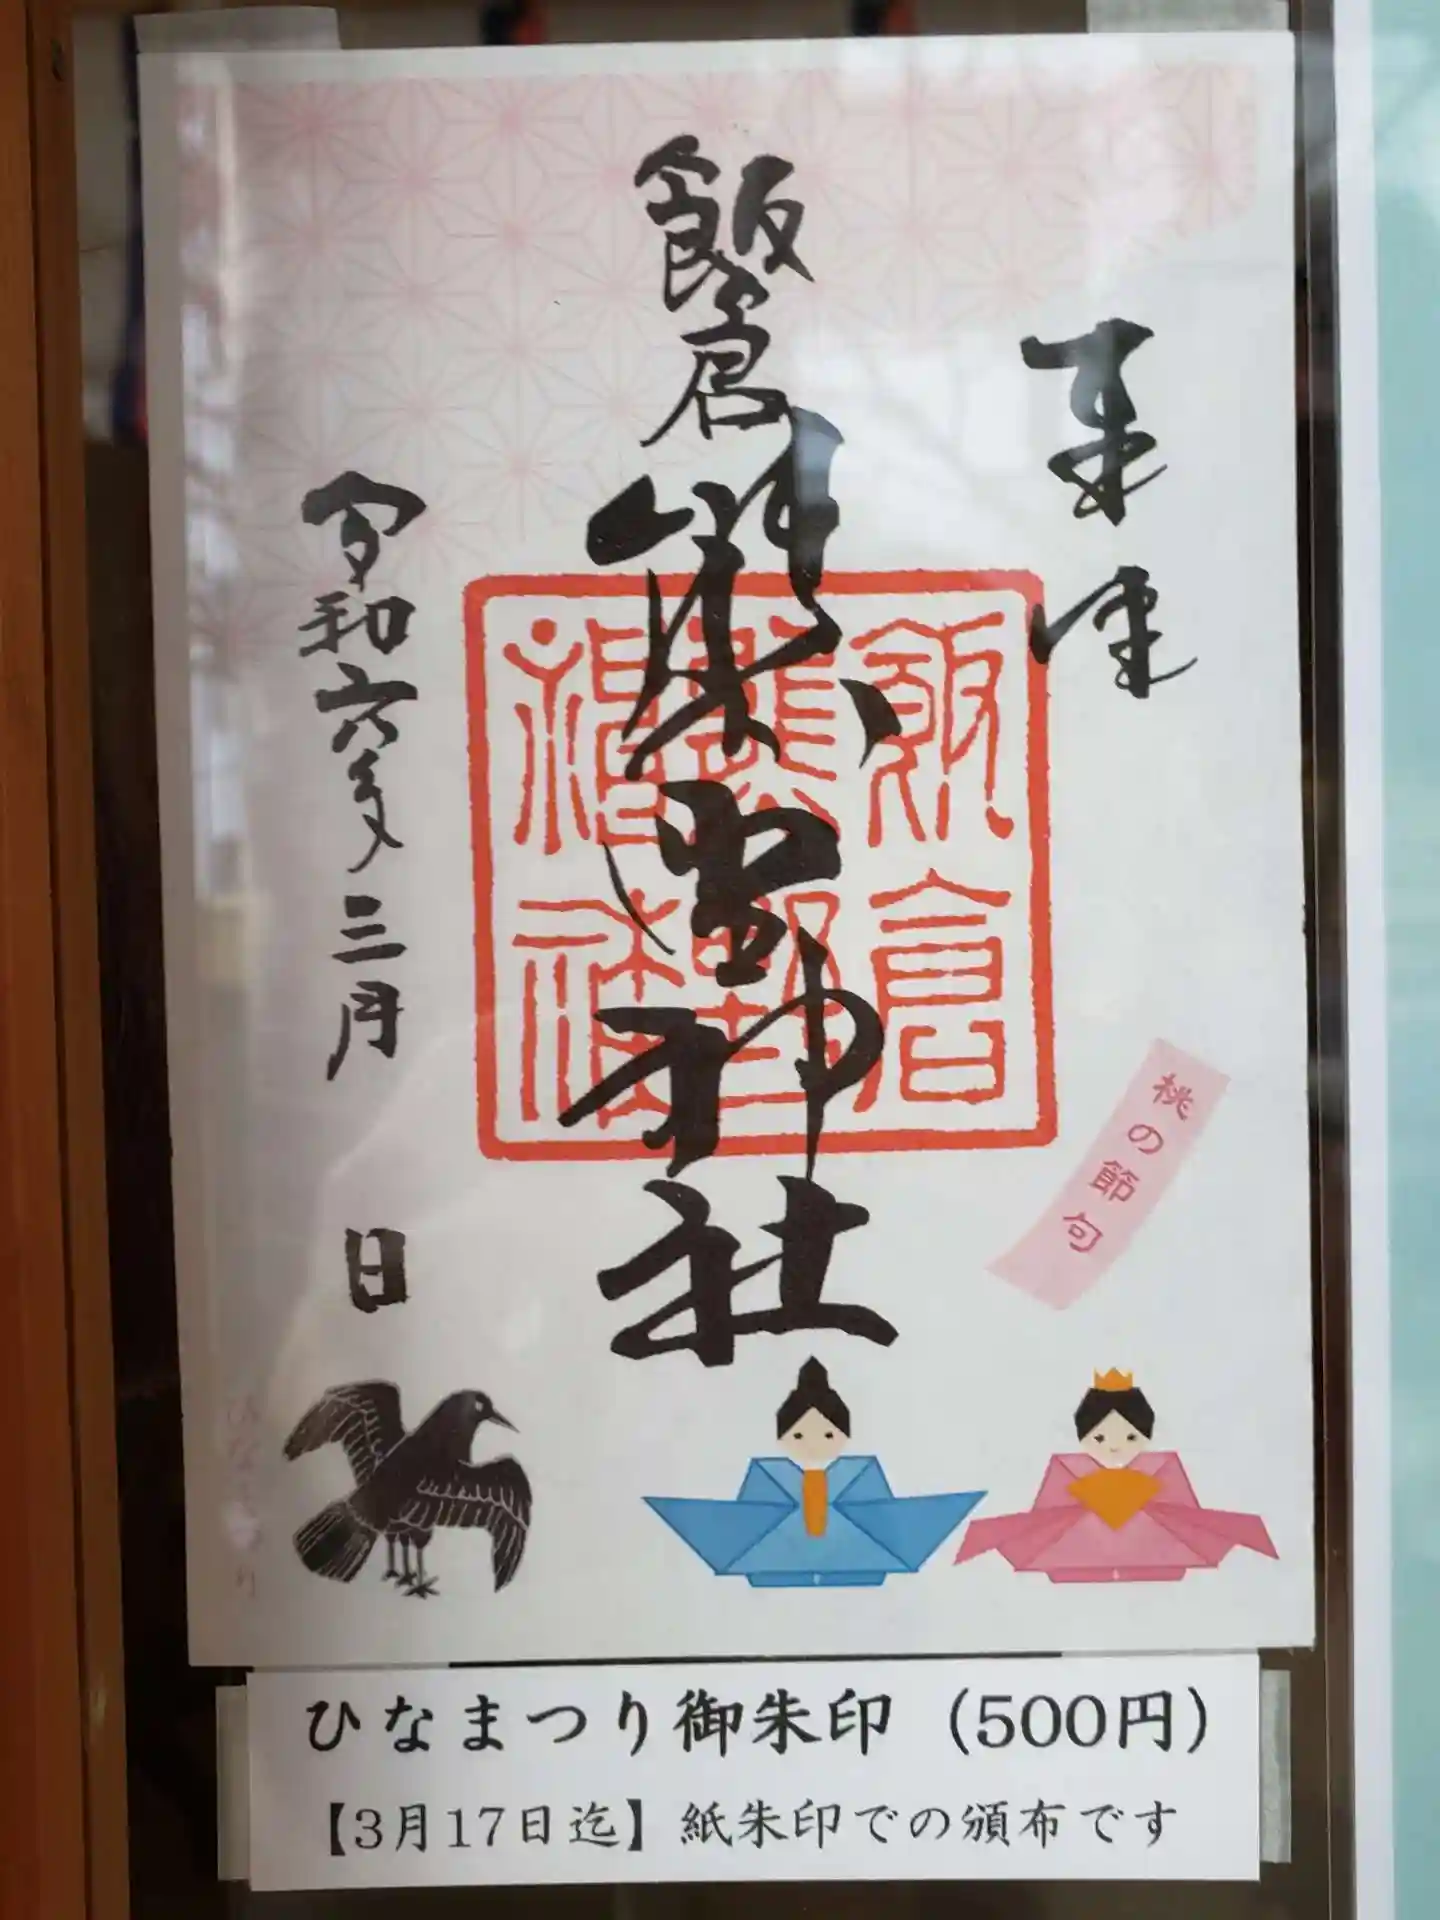 奉拝
飯倉熊野神社
飯倉
熊野
神社
令和六年三月 日
桃の節句
ひなまつり
ひなまつり御朱印（500円）
【3月17日迄】紙朱印での頒布です